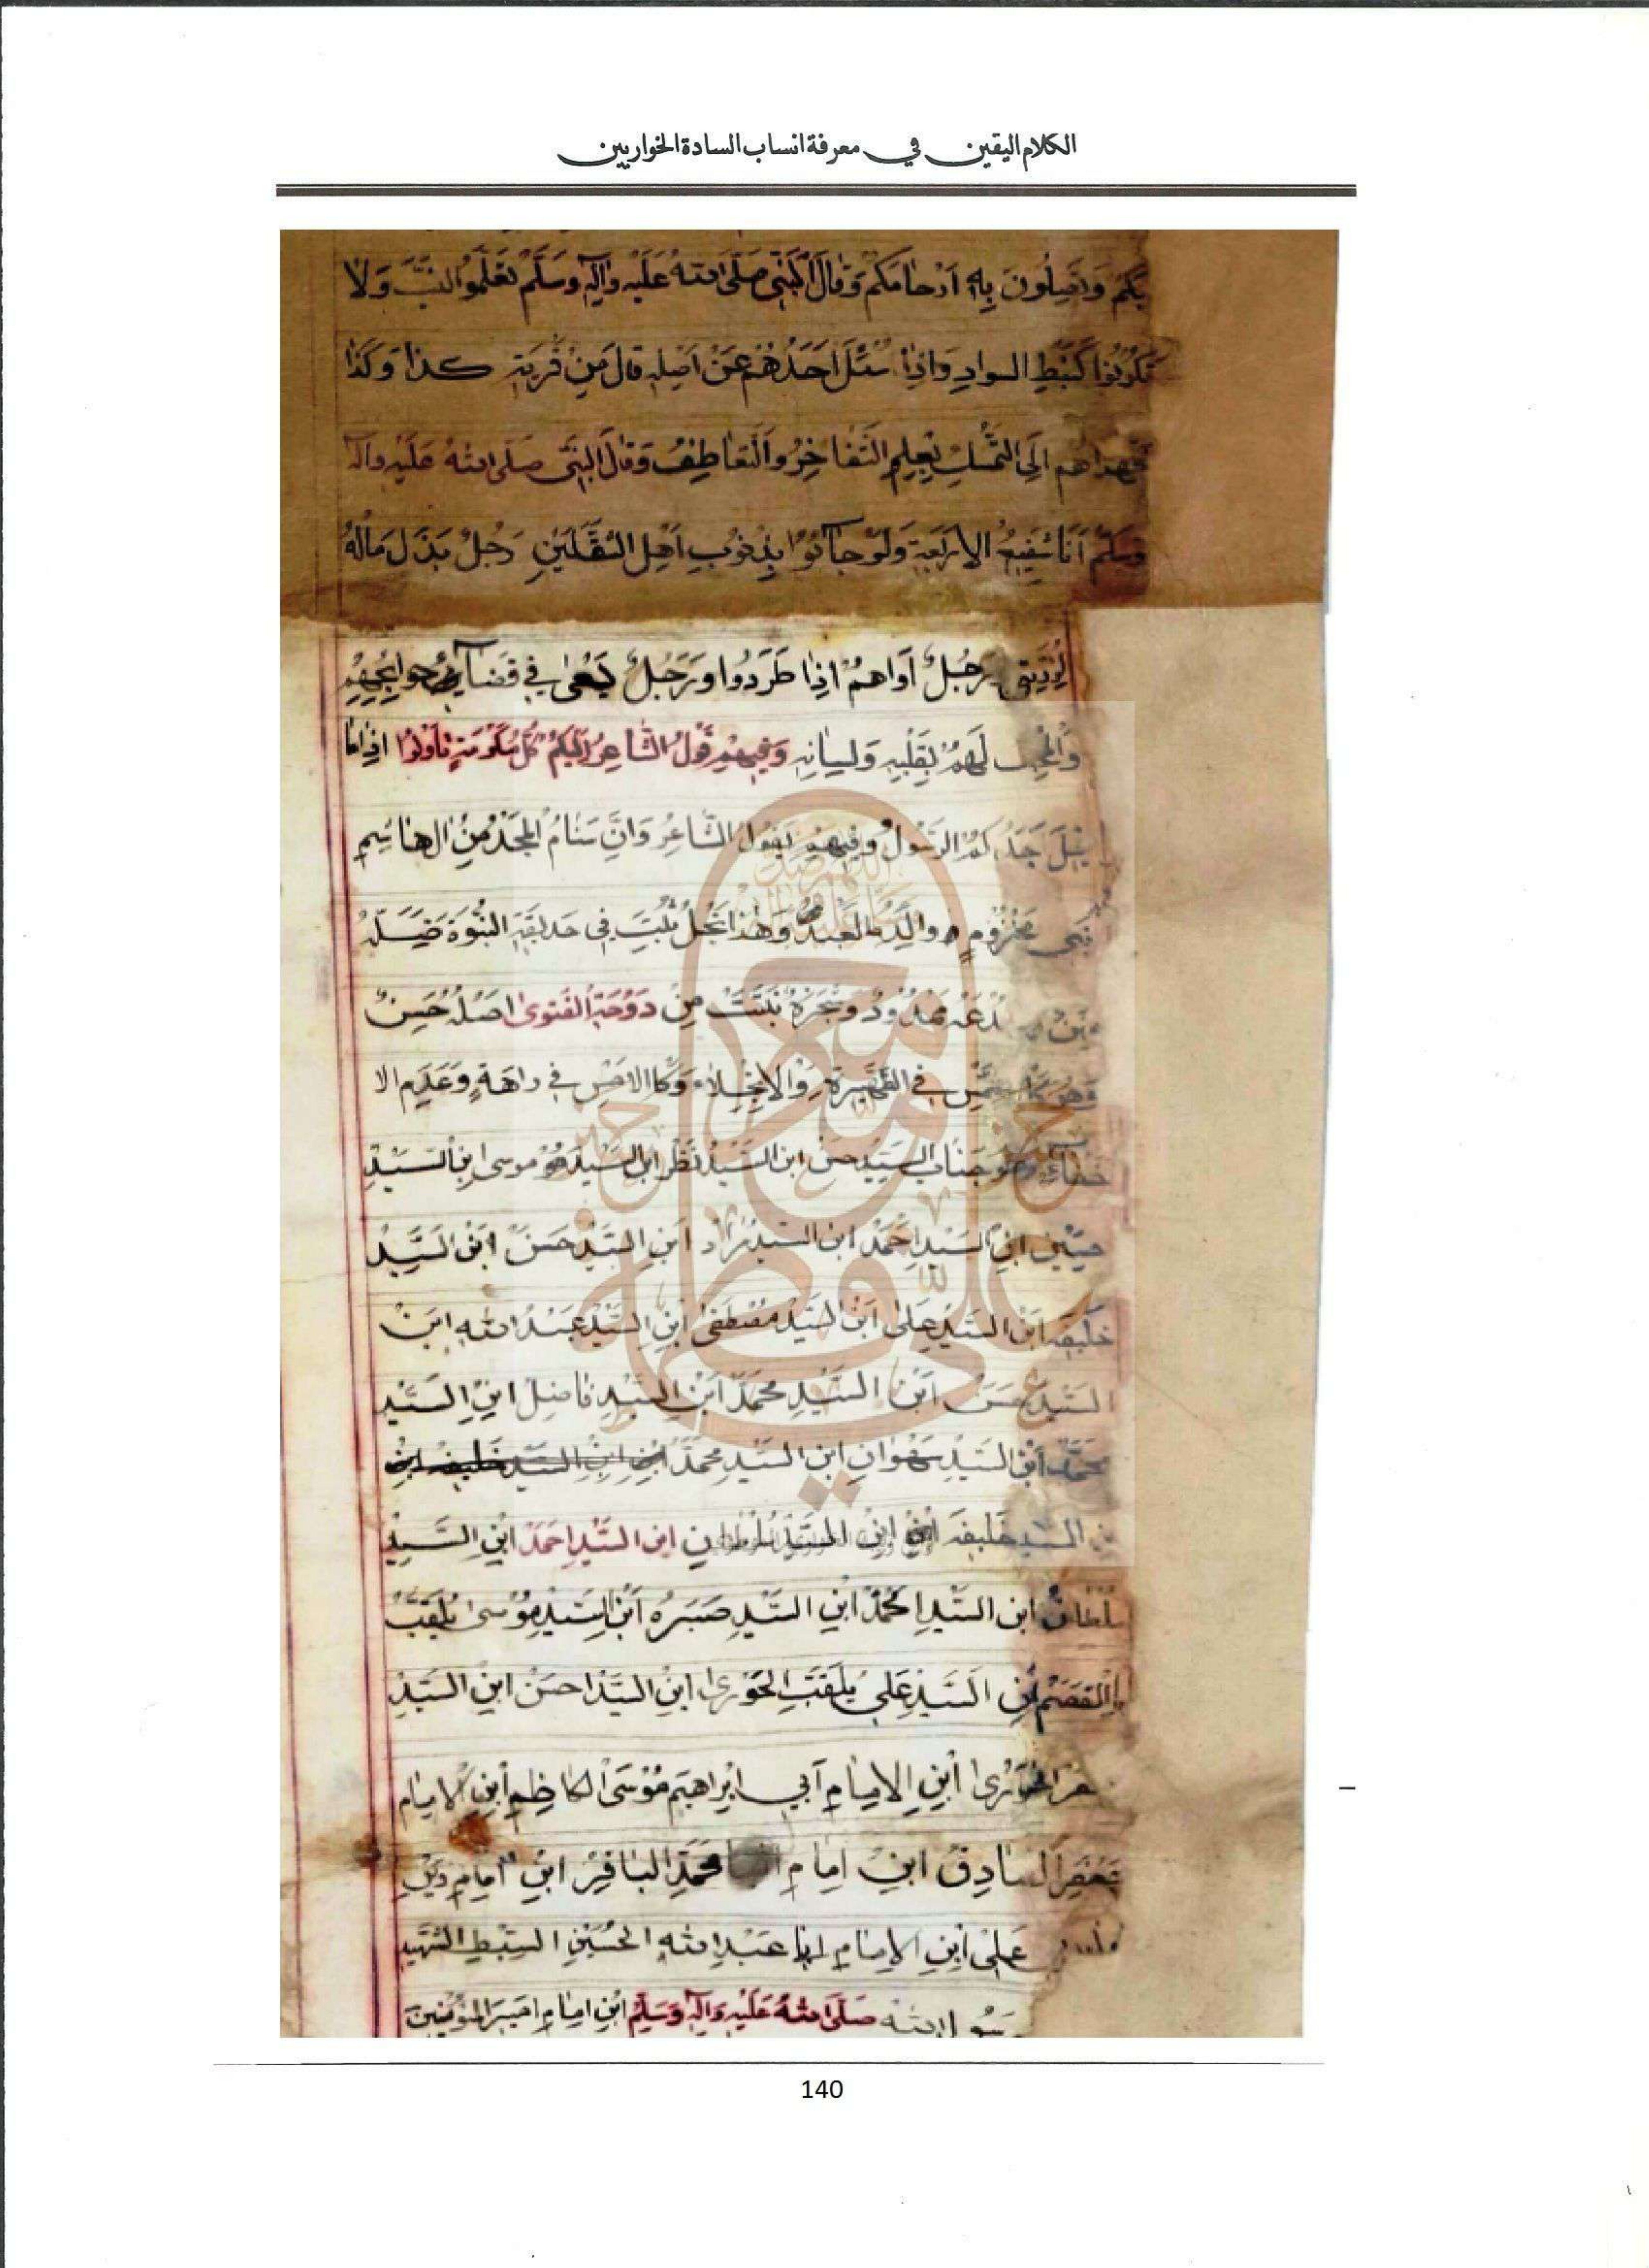 الكلام اليقين في معرفة انساب السادة الخواريين
بكم وتصلون به ارحامكم وقال النبي صلى الله عليه وآله وسلم تعلموا النسب ولا
تكونوا كنبط السواد واذا سئل احدهم عن اصله قال من قرية كذا وكذا
الى التمسك بعلم التفاخر والتعاطف وقال النبي صلى الله عليه وآله
وسلم انا شفيع الاربعة ولو جاؤا بذنوب اهل الثقلين رجل بذل ماله
لذريتي رجل اواهم اذا طردوا ورجل يسعى في قضاء حوايجهم
والمحب لهم بقلبه ولسانه وفيهم قول الشاعر اليكم كل مكرمة تأولوا اذا ما
قيل جدكم الرسول وفيهم يقول الشاعر وان سنام المجد من ال هاشم
بني مخزوم ووالدك العبد وهذا نجل نبت في حديقة النبوة
وشجرة نبتت من دوحة الفتوى اصله حسن
في الظهيرة والانجلاء في وعدم الا
خفاء وهو جناب السيد حسن ابن السيد نظر ابن السيد موسى ابن السيد
حسين ابن السيد احمد ابن السيد مراد ابن السيد حسن ابن السيد
خليفه ابن السيد على ابن السيد مصطفى ابن السيد عبد الله ابن
السيد حسن ابن السيد محمد ابن السيد فاضل ابن السيد
محمد ابن السيد سهوان ابن السيد محمد ابن ابن السيد خليفه ابن
السيد خليفه ابن السيد سلطان ابن السيد احمد ابن السيد
سلطان ابن السيد احمد ابن السيد صبره ابن السيد موسى يلقب
ابن السيد علي يلقب الخوري ابن السيد احسن ابن السيد
ابن الامام أبي ابراهيم موسى الكاظم ابن الامام
جعفر الصادق ابن امام محمد الباقر ابن امام
على ابن الامام ابا عبد الله الحسين السبط الشهيد
رسول الله صلى الله عليه وآله وسلم ابن امام امير المؤمنين
140